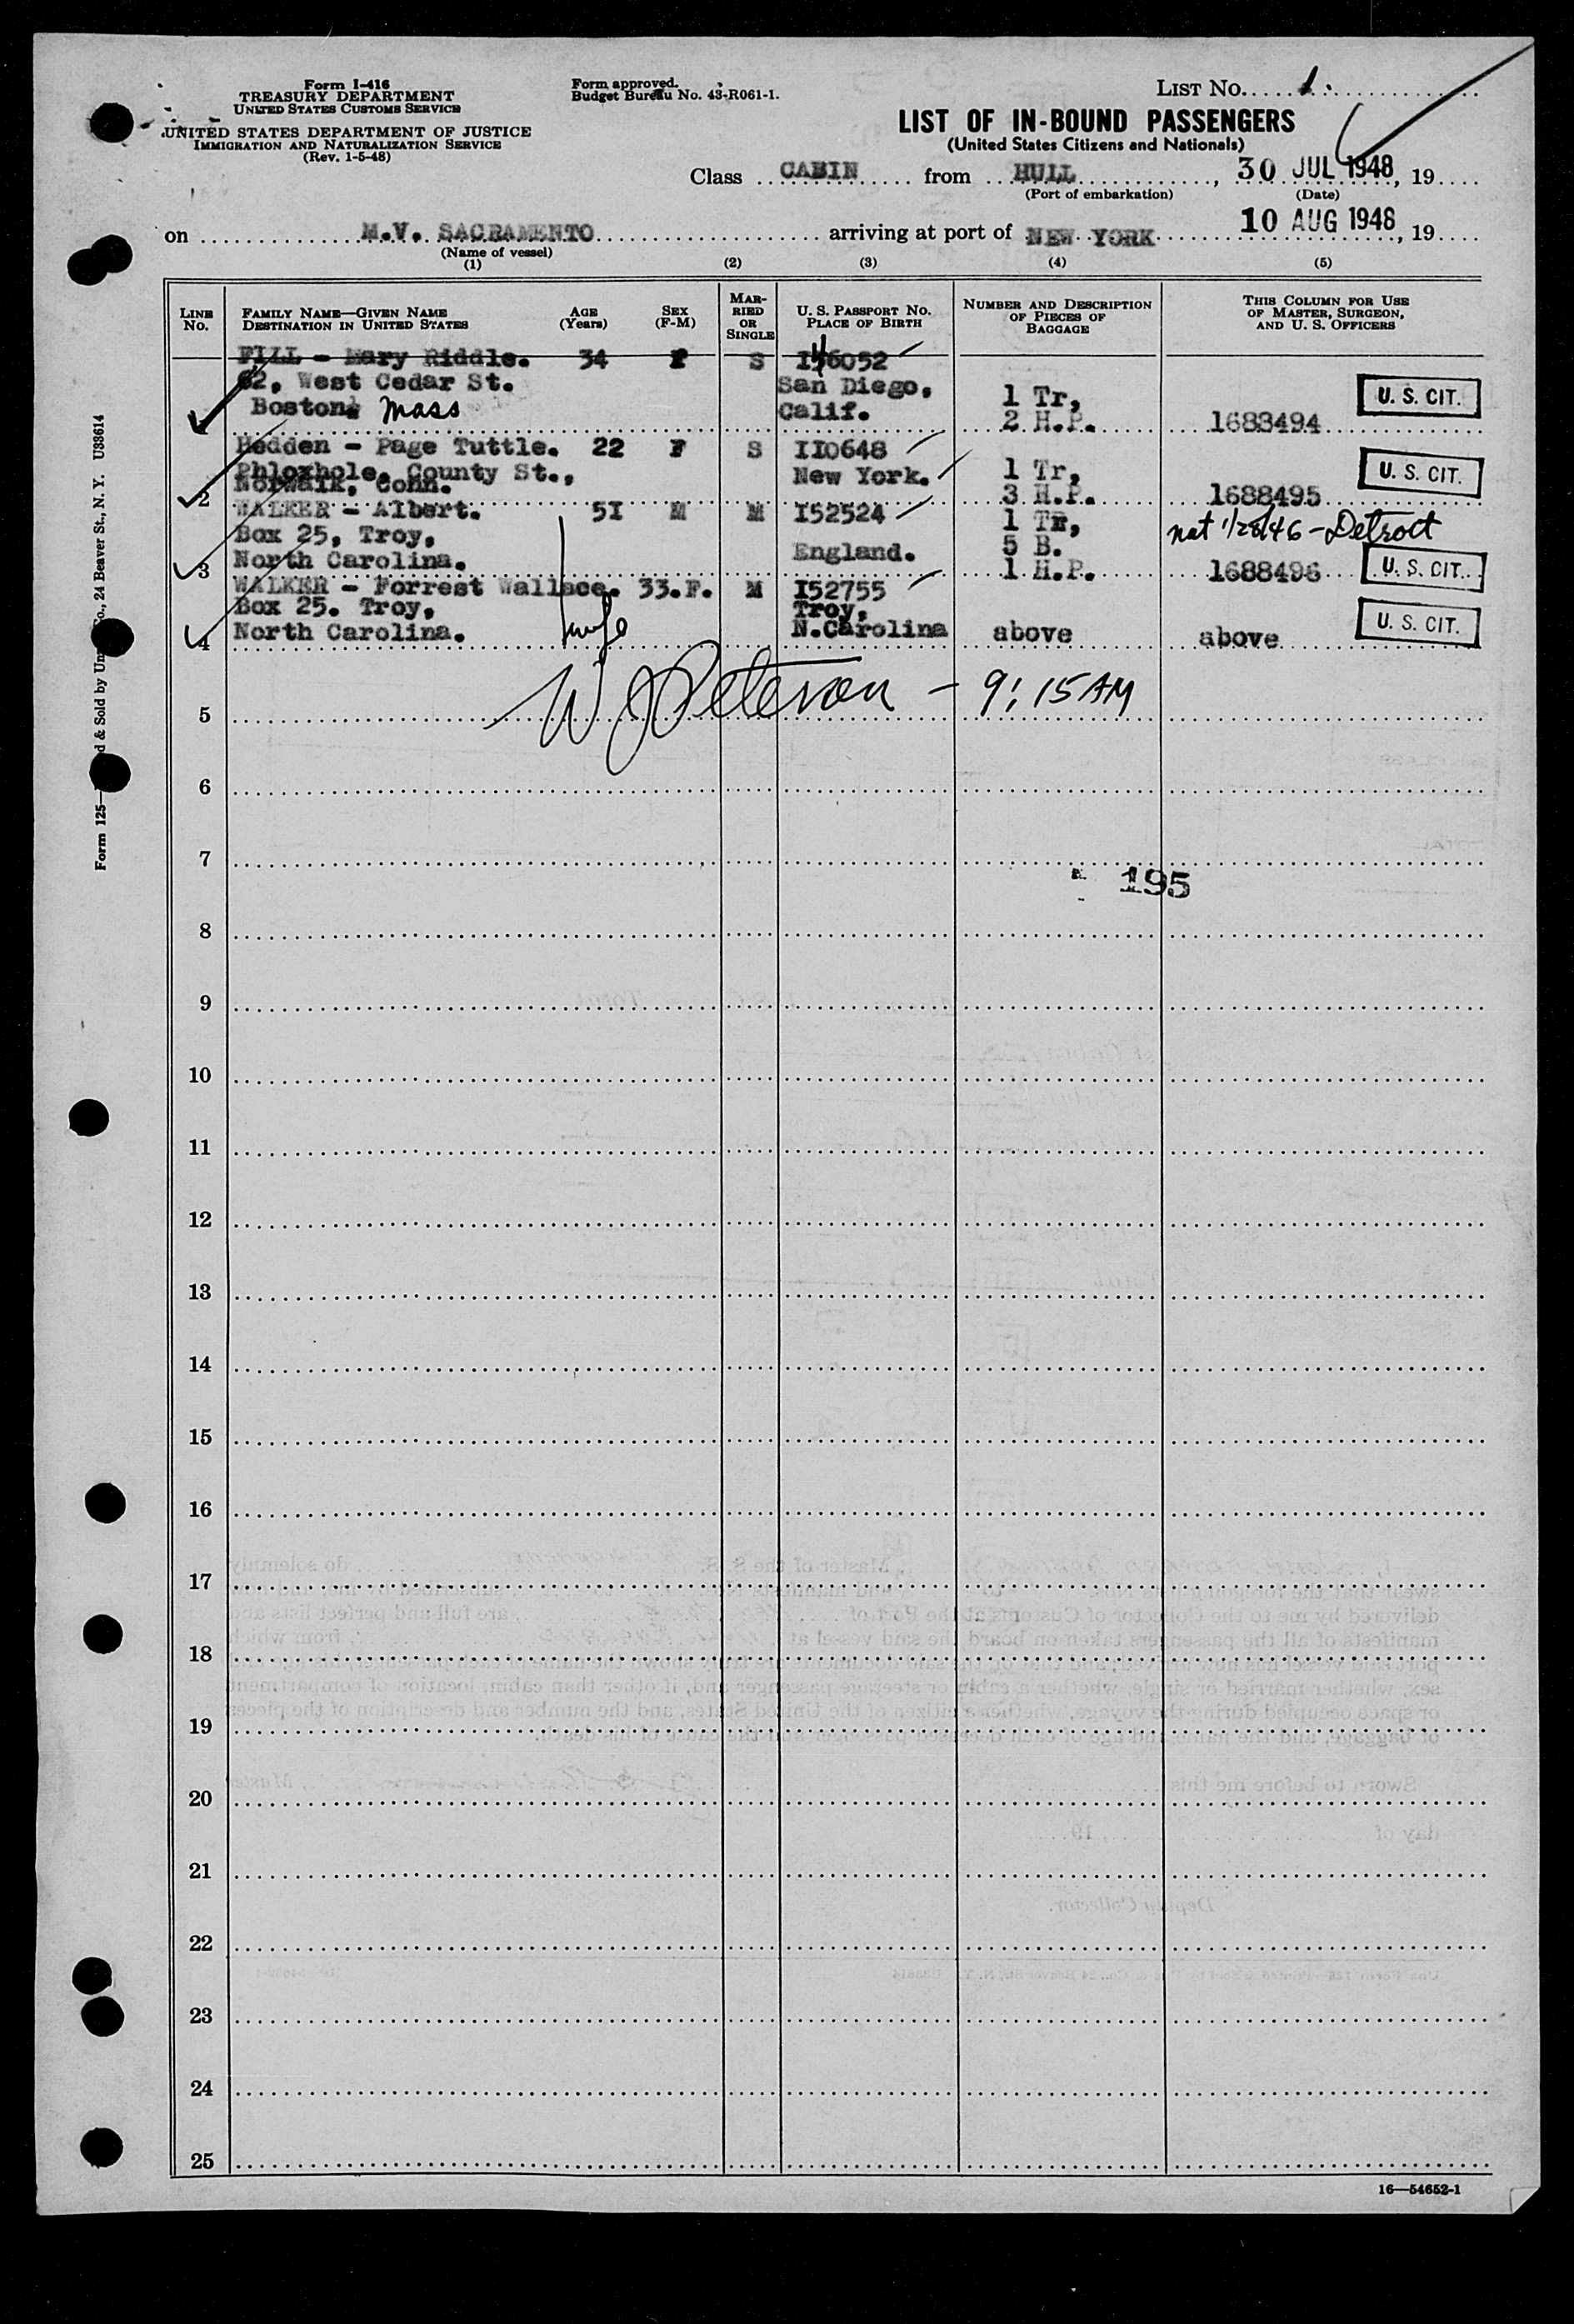 Form I-416
TREASURY DEPARTMENT
UNITED STATES CUSTOMS SERVICE
UNITED STATES DEPARTMENT OF JUSTICE
IMMIGRATION AND NATURALIZATION SERVICE
(Rev. 1-5-48)
Form approved.
Budget Bureau No. 43-R061-1.
LIST NO. 1
LIST OF IN-BOUND PASSENGERS
(United States Citizens and Nationals)
Class CABIN from HULL, 30 JUL 1948, 19
(Port of embarkation) (Date)
on M.V. SACRAMENTO arriving at port of NEW YORK 10 AUG 1948, 19
(Name of vessel)
(1) (2) (3) (4) (5)
LINE NO.
FAMILY NAME—GIVEN NAME
DESTINATION IN UNITED STATES
AGE (Years)
SEX (F-M)
MARRIED OR SINGLE
U. S. PASSPORT NO.
PLACE OF BIRTH
NUMBER AND DESCRIPTION OF PIECES OF BAGGAGE
THIS COLUMN FOR USE OF MASTER, SURGEON, AND U. S. OFFICERS
FILL - Mary Riddle. 34 F S I46052
62, West Cedar St. San Diego, 1 Tr, U. S. CIT.
Boston, Mass Calif. 2 H.P. 1688494
Hedden - Page Tuttle. 22 F S II0648
Phloxhole, County St., New York. 1 Tr, U. S. CIT.
2 Norwalk, Conn. 3 H.P. 1688495
WALKER - Albert. 5I M M I52524 1 Tr, nat 1/28/46 - Detroit
Box 25, Troy, 5 B.
3 North Carolina. England. 1 H.P. 1688496 U. S. CIT.
WALKER - Forrest Wallace. 33. F. M I52755
Box 25. Troy, Troy,
4 North Carolina. wife N.Carolina above above U. S. CIT.
5 W J Peterson - 9:15 AM
6
7
195
8
9
10
11
12
13
14
15
16
17
18
19
20
21
22
23
24
25
16—54652-1